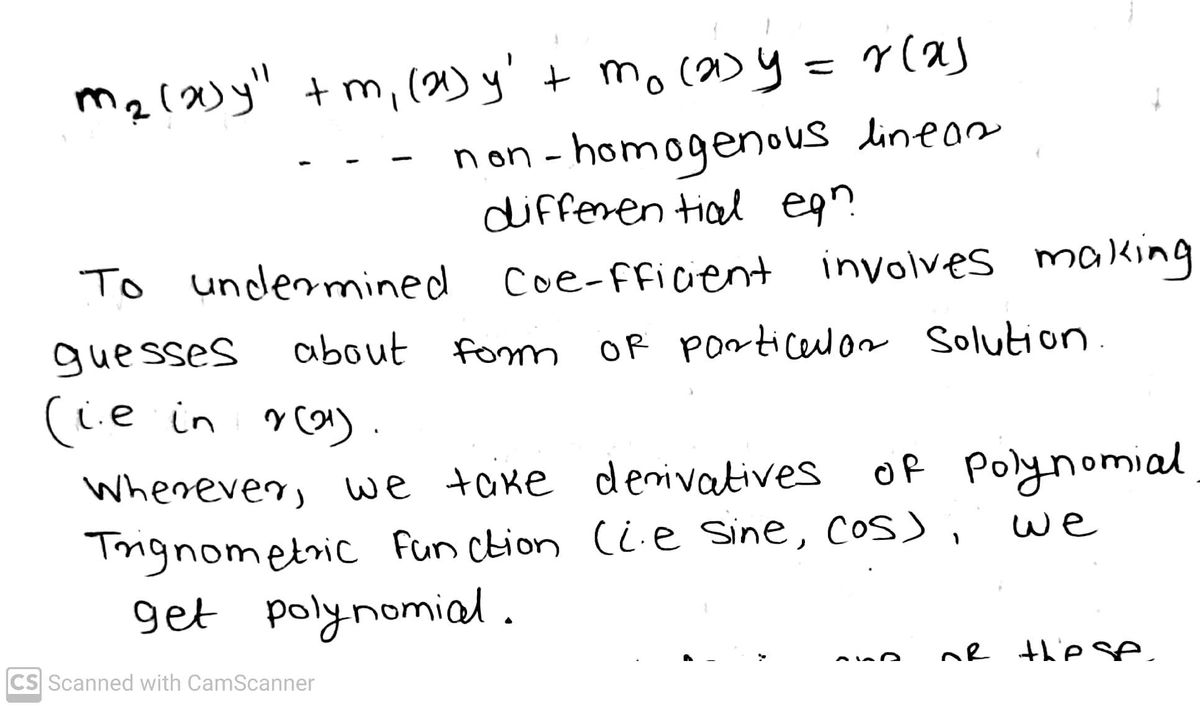 m₂(x)y'' + m₁(x)y' + m₀(x)y = r(x)
- - - non-homogenous linear
differential eqn
To undermined Coe-fficient involves making
guesses about form of particular Solution.
(i.e in r(x).
Wherever, we take derivatives of polynomial
Trignometric function (i.e sine, cos), we
get polynomial.
one of these
CS Scanned with CamScanner